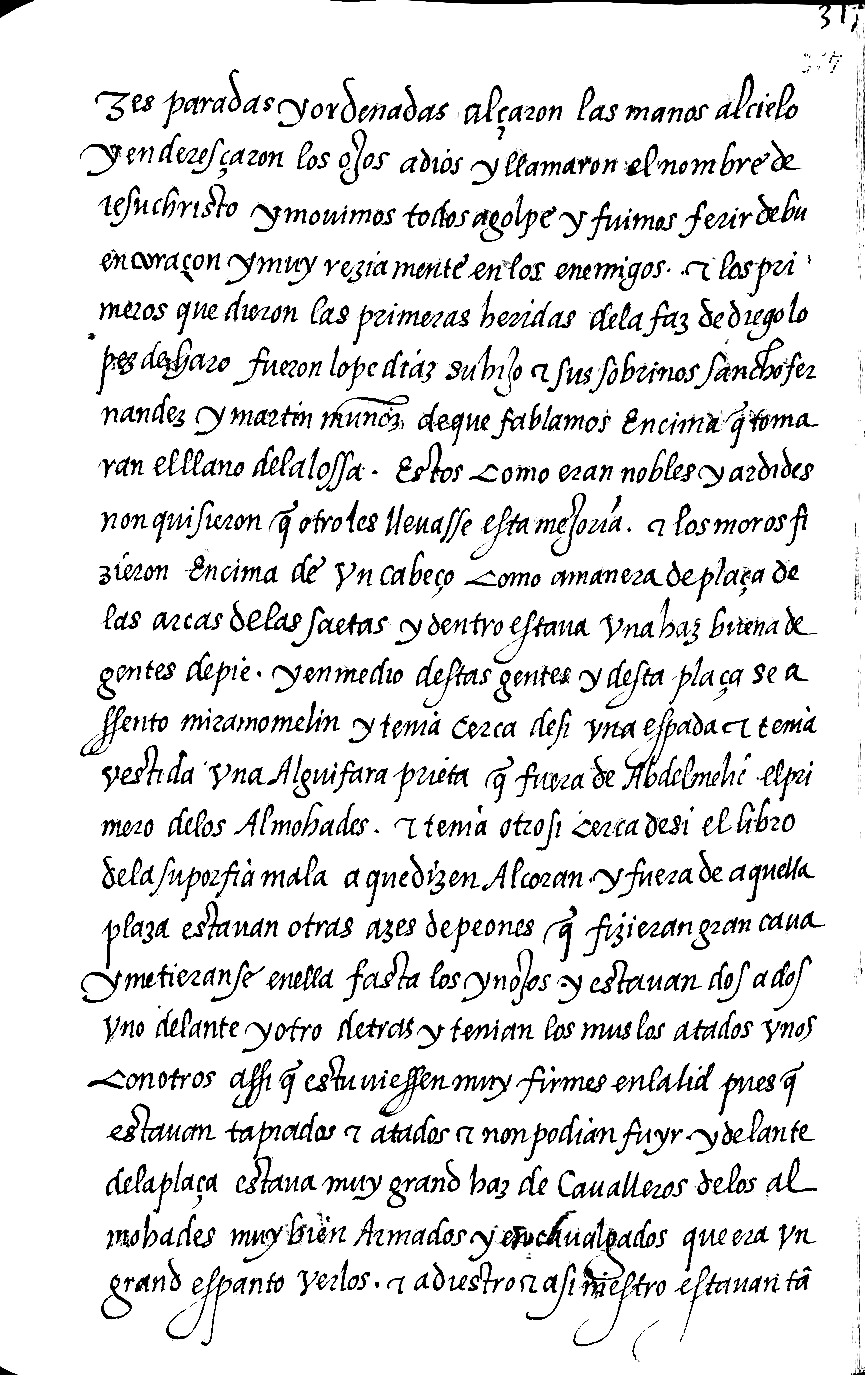 zes paradas y ordenadas alçaron las manos al cielo
y enderesçaron los ojos a dios y llamaron el nombre de
iesuchristo y mouimos todos a golpe y fuimos ferir de bu
en coraçon y muy reziamente en los enemigos. & los pri
meros que dieron las primeras heridas de la faz de diego lo
pez de haro fueron lope diaz su hijo & sus sobrinos sancho fer
nandez y martin munoz de que fablamos Encima q̃ toma
ran el llano de la lossa. Estos como eran nobles y ardides
non quisieron q̃ otro les lleuasse esta mejoria. & los moros fi
zieron Encima de vn cabeço como a manera de plaça de
las arcas de las saetas y dentro estaua vna haz buena de
gentes de pie. y en medio destas gentes y desta plaça se a
ssento miramomelin y tenia cerca de si vna espada & tenia
vestida vna Alguifara prieta q̃ fuera de Abdelmehi el pri
mero de los Almohades. & tenia otrosi cerca de si el libro
de la su porfia mala a que dizen Alcoran. y fuera de aquella
plaza estauan otras azes de peones q̃ fizieran gran caua
y metieranse en ella fasta los ynojos y estauan dos a dos
vno delante y otro detras y tenian los muslos atados vnos
con otros assi q̃ estuuiessen muy firmes en la lid pues q̃
estauan tapiados & atados & non podian fuyr. y delante
de la plaça estaua muy grand haz de Caualleros de los al
mohades muy bien Armados y encaualgados que era vn
grand espanto verlos. & a diestro & a siniestro estauan tã